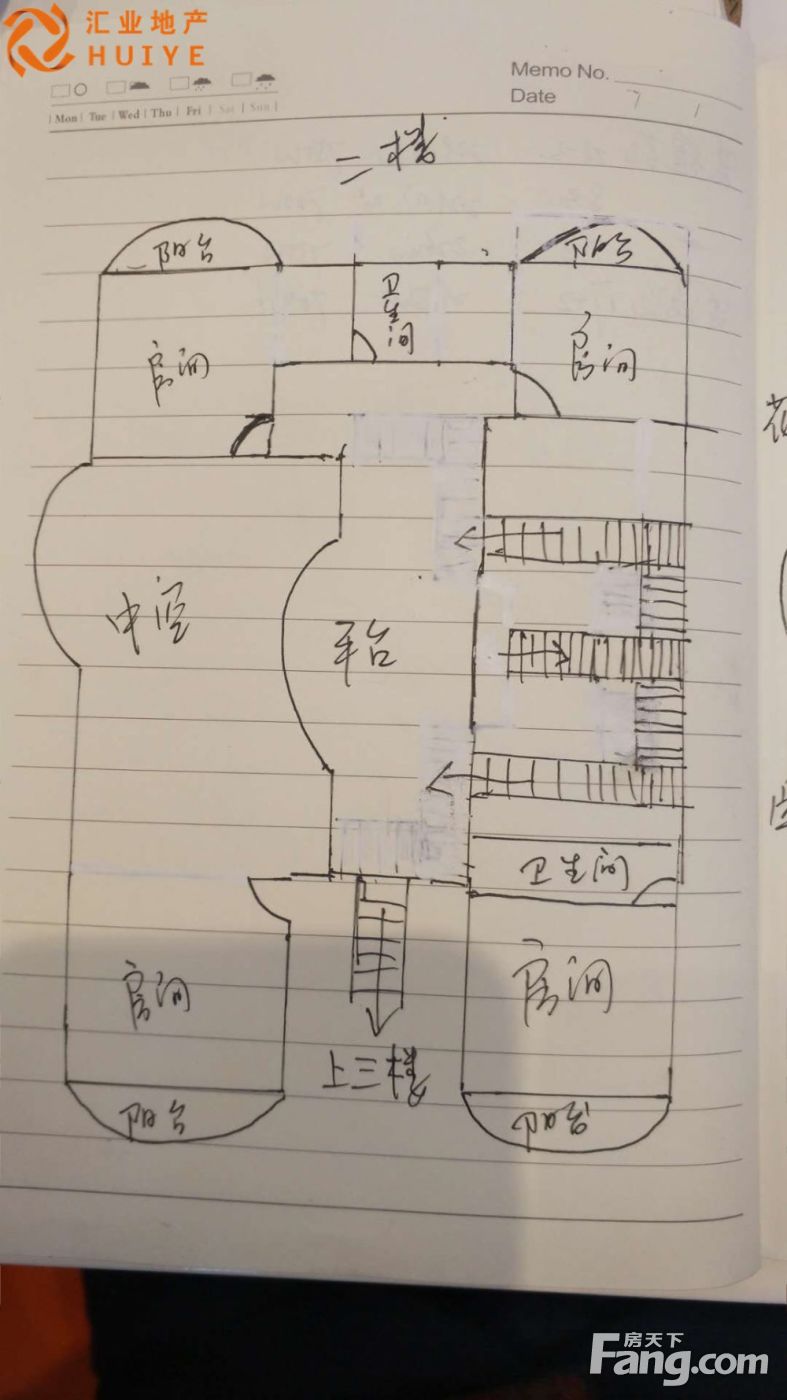 汇业地产
HUIYE
Memo No.
Date
Mon | Tue | Wed | Thu | Fri | Sat | Sun
二楼
阳台
阳台
卫生间
房间
房间
中空
平台
卫生间
房间
房间
上三楼
阳台
阳台
房天下
Fang.com